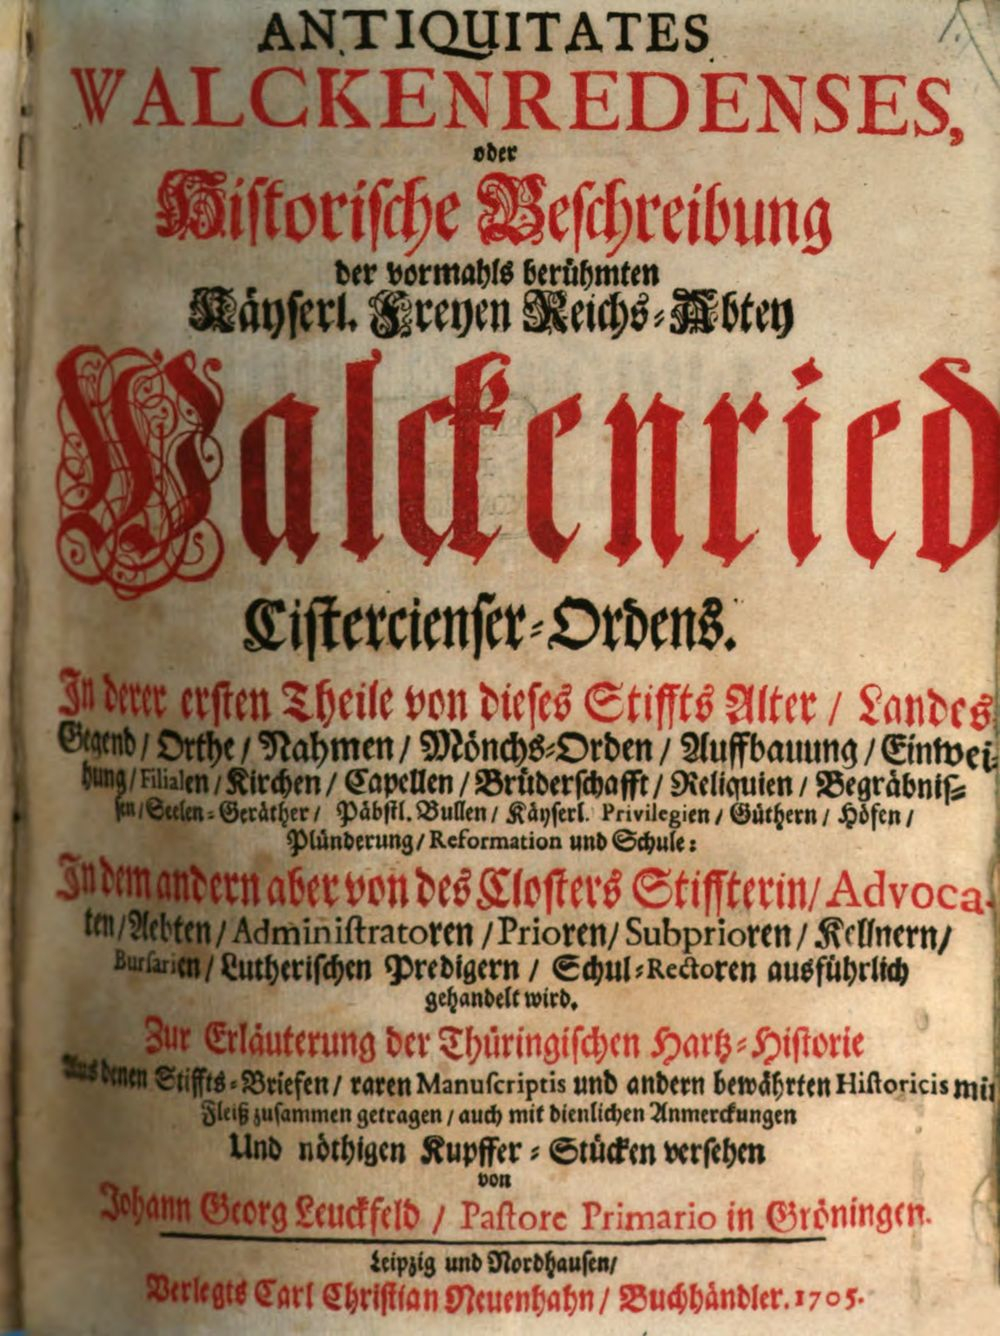 ANTIQUITATES
WALCKENREDENSES,
oder
Historische Beschreibung
der vormahls berühmten
Käyserl. Freyen Reichs-Abtey
Walckenried
Cistercienser-Ordens.
In derer ersten Theile von dieses Stiffts Alter / Landes
Gegend / Orthe / Nahmen / Mönchs-Orden / Auffbauung / Einwei-
hung / Filialen / Kirchen / Capellen / Brüderschafft / Reliquien / Begräbnis-
sen / Seelen-Geräther / Päbstl. Bullen / Käyserl. Privilegien / Güthern / Höfen /
Plünderung / Reformation und Schule:
In dem andern aber von des Closters Stiffterin / Advoca-
ten / Aebten / Administratoren / Prioren / Subprioren / Kellnern /
Bursarien / Lutherischen Predigern / Schul-Rectoren ausführlich
gehandelt wird.
Zur Erläuterung der Thüringischen Hartz-Historie
Aus denen Stiffts-Briefen / raren Manuscriptis und andern bewährten Historicis mit
Fleiß zusammen getragen / auch mit dienlichen Anmerckungen
Und nöthigen Kupffer-Stücken versehen
von
Johann Georg Leuckfeld / Pastore Primario in Gröningen.
Leipzig und Nordhausen /
Verlegts Carl Christian Neuenhahn / Buchhändler. 1705.